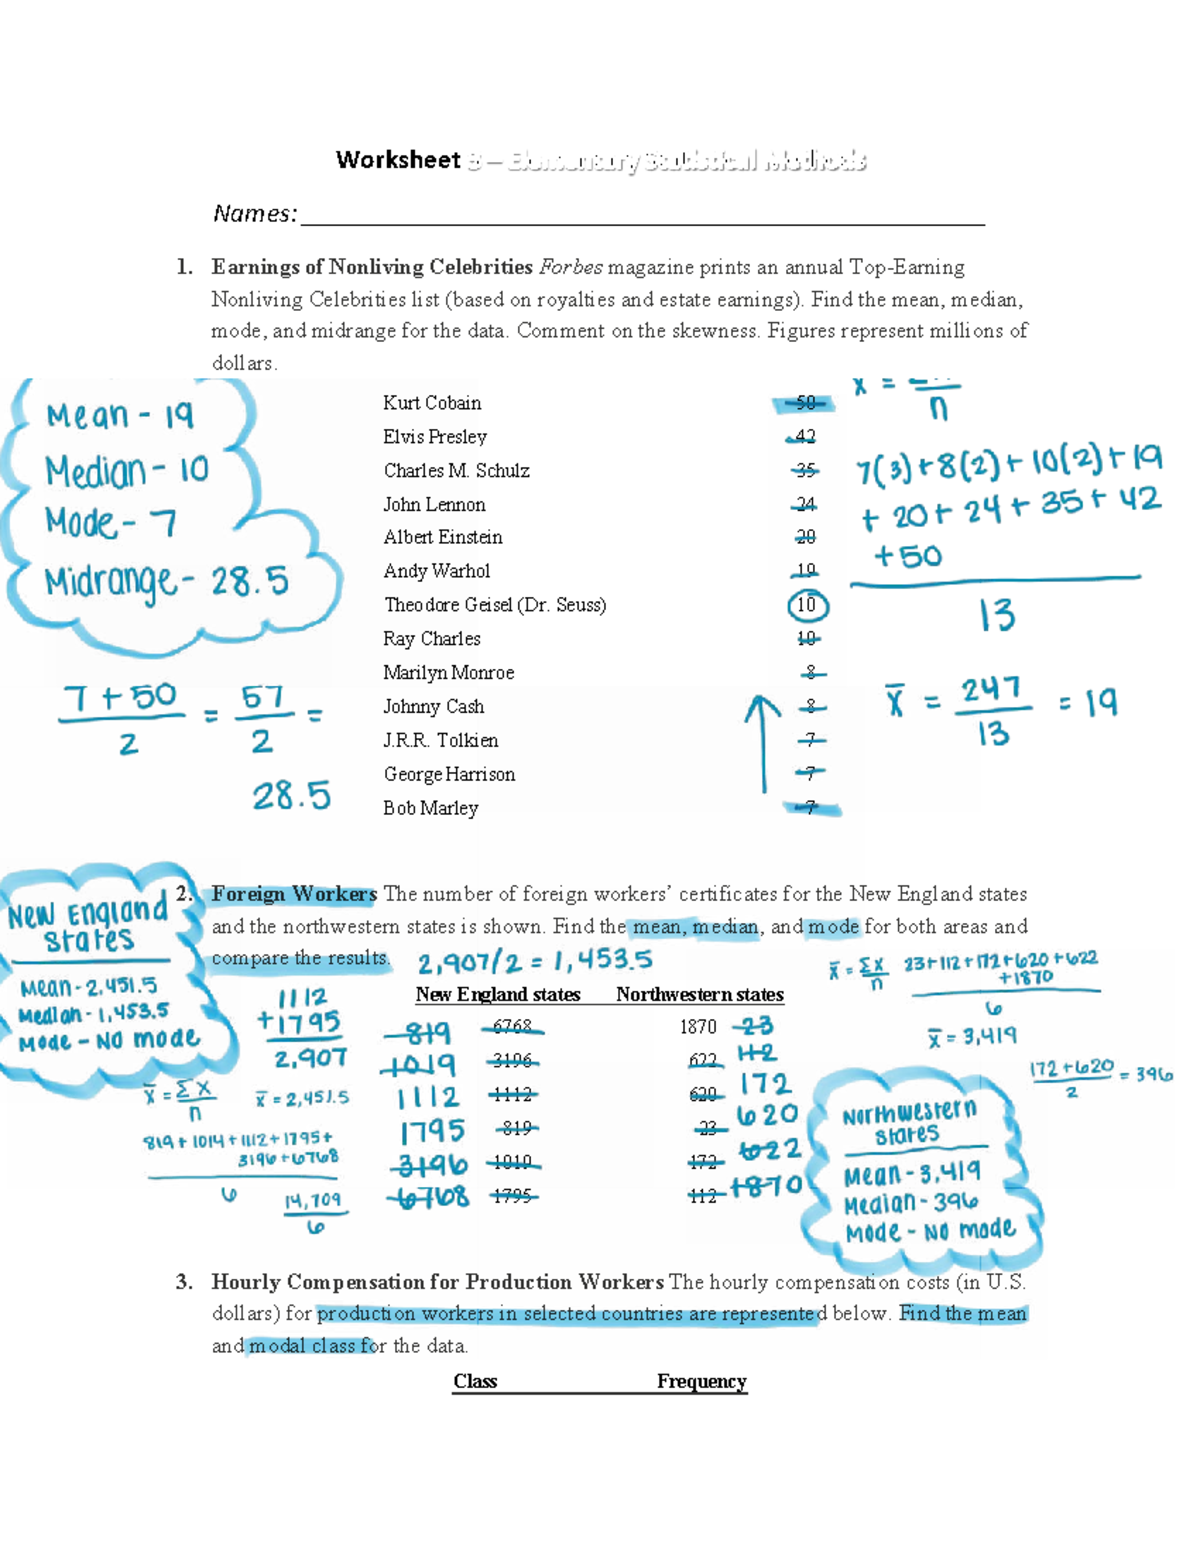 Worksheet 3 – Elementary Statistical Methods
Names:
1. Earnings of Nonliving Celebrities Forbes magazine prints an annual Top-Earning
Nonliving Celebrities list (based on royalties and estate earnings). Find the mean, median,
mode, and midrange for the data. Comment on the skewness. Figures represent millions of
dollars.
Mean - 19
Median - 10
Mode - 7
Midrange - 28.5
7 + 50 / 2 = 57 / 2 =
28.5
Kurt Cobain 50
Elvis Presley 42
Charles M. Schulz 35
John Lennon 24
Albert Einstein 20
Andy Warhol 19
Theodore Geisel (Dr. Seuss) 10
Ray Charles 10
Marilyn Monroe 8
Johnny Cash 8
J.R.R. Tolkien 7
George Harrison 7
Bob Marley 7
x̄ = n
7(3)+8(2)+10(2)+19
+ 20+ 24+ 35+ 42
+50
13
x̄ = 247 / 13 = 19
2. Foreign Workers The number of foreign workers’ certificates for the New England states
and the northwestern states is shown. Find the mean, median, and mode for both areas and
compare the results.
2,907/2 = 1,453.5
New England States
Mean - 2,451.5
Median - 1,453.5
Mode - No mode
1112
+1795
2,907
x̄ = Σx / n
x̄ = 2,451.5
819+1014+1112+1795+
3196+6768
6
14,709
6
New England states Northwestern states
819 6768 1870 23
1019 3196 622 112
1112 1112 620 172
1795 819 23 620
3196 1019 172 622
6768 1795 112 1870
x̄ = Σx / n
23+112+172+620+622
+1870
6
x̄ = 3,419
172+620 / 2 = 396
Northwestern States
Mean - 3,419
Median - 396
Mode - No mode
3. Hourly Compensation for Production Workers The hourly compensation costs (in U.S.
dollars) for production workers in selected countries are represented below. Find the mean
and modal class for the data.
Class Frequency